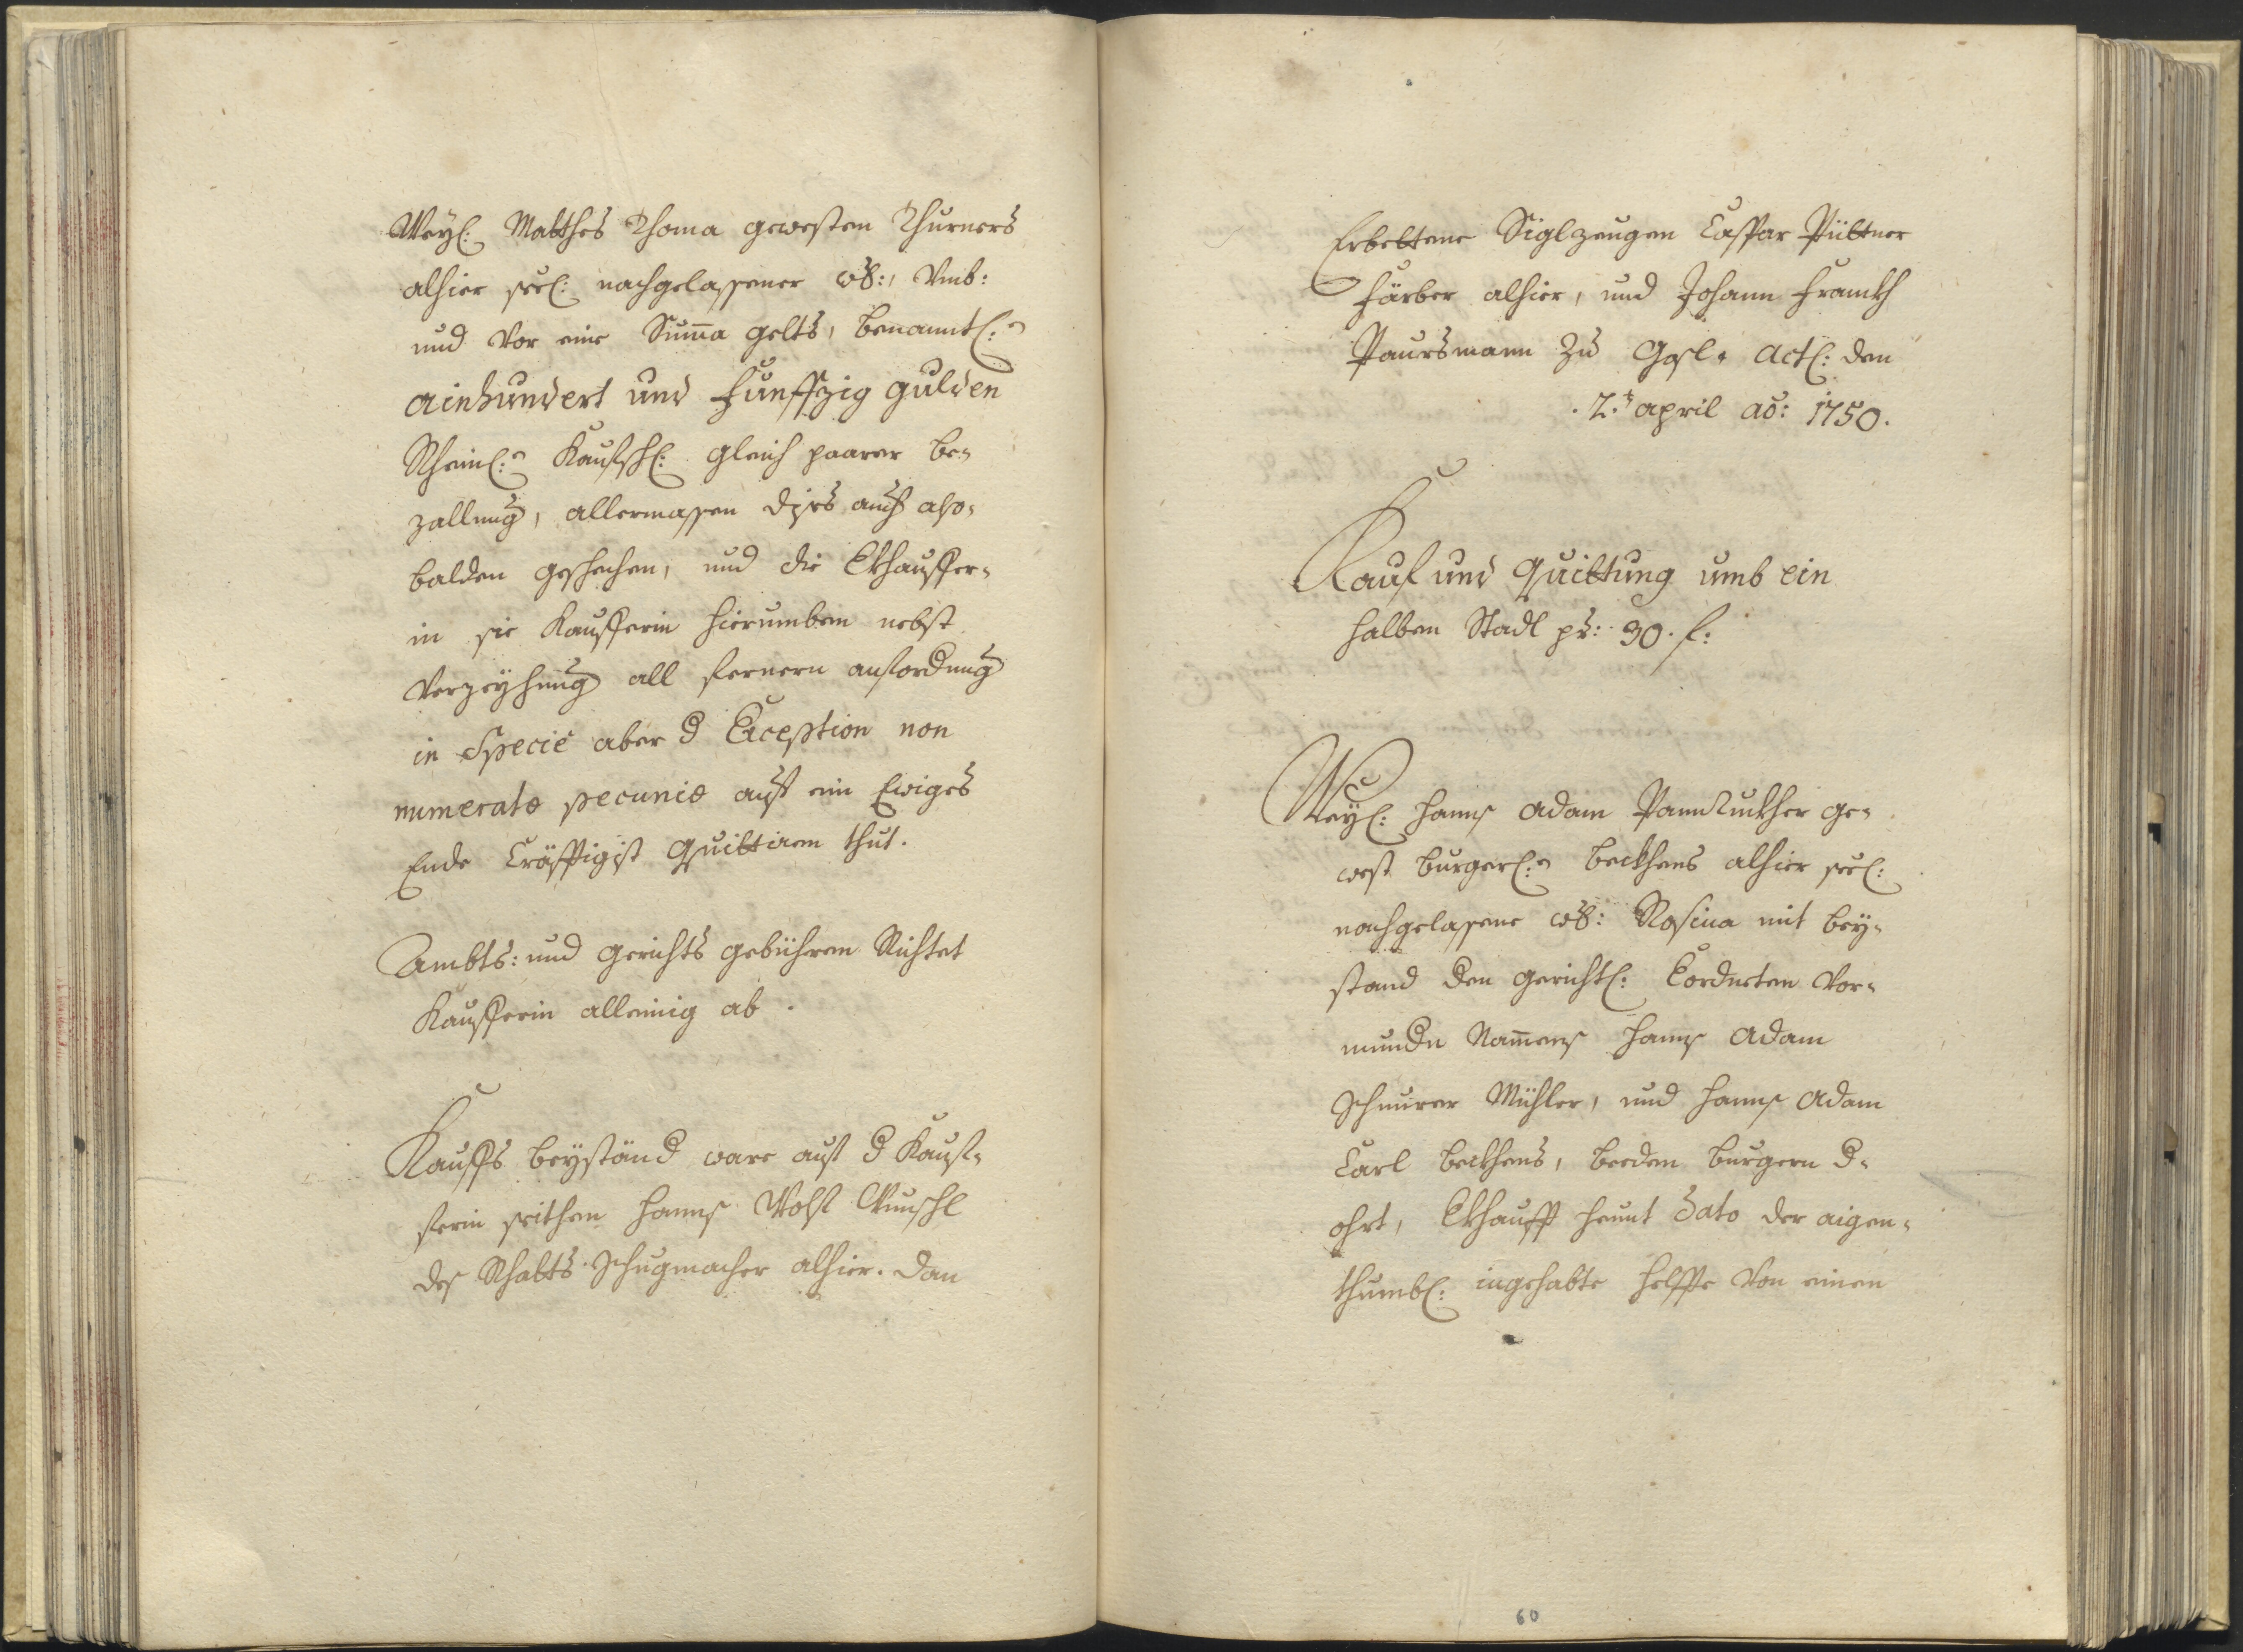 Weyl: Matthes Thoma gewesten Thurners
alhier seel: nachgelassener wb:, Vmb:
und Vor eine Suma gelts, benantl:
ainhundert und Funffzig gulden
Rheinl: Kaufsch: gleich paarer be-
zallung, allermassen dises auch also-
balden geschechen, und die Verkhauffer-
in sie Kaufferin hierumben nebst
Verzeyhung all fernern anfordung
in Specie aber d Exception non
numeratæ pecuniæ auf ein Ewiges
Ende Cräfftigist Quittiren thut.
Ambts: und gerichts gebühren Richtet
Kaufferin alleinig ab.
Kauffs beyständ ware auf d Kauf-
ferin seithen Hanns Wolf
des Rhatts Schugmacher alhier. dan
Erbettene Siglzeugen Caspar Püttner
Färber alhier, und Johann Franckh
Paursmann Zu Actl: den
.2.t april ao: 1750.
Kauf und Quittung umb ein
halben Stadl pr: 30. f:
Weyl: Hanns Adam ge-
west burgerl: beckhens alhier seel:
nachgelasene wb: Rosina mit bey-
stand den gerichtl: Vor-
mundn Namens Hanns Adam
Schnurer Mühler, und Hanns Adam
Carl beckhens, beeden burgern d-
ohrt, Verkhaufft heunt Dato der aigen-
thumbl: ingehabte helffte Von einen
60